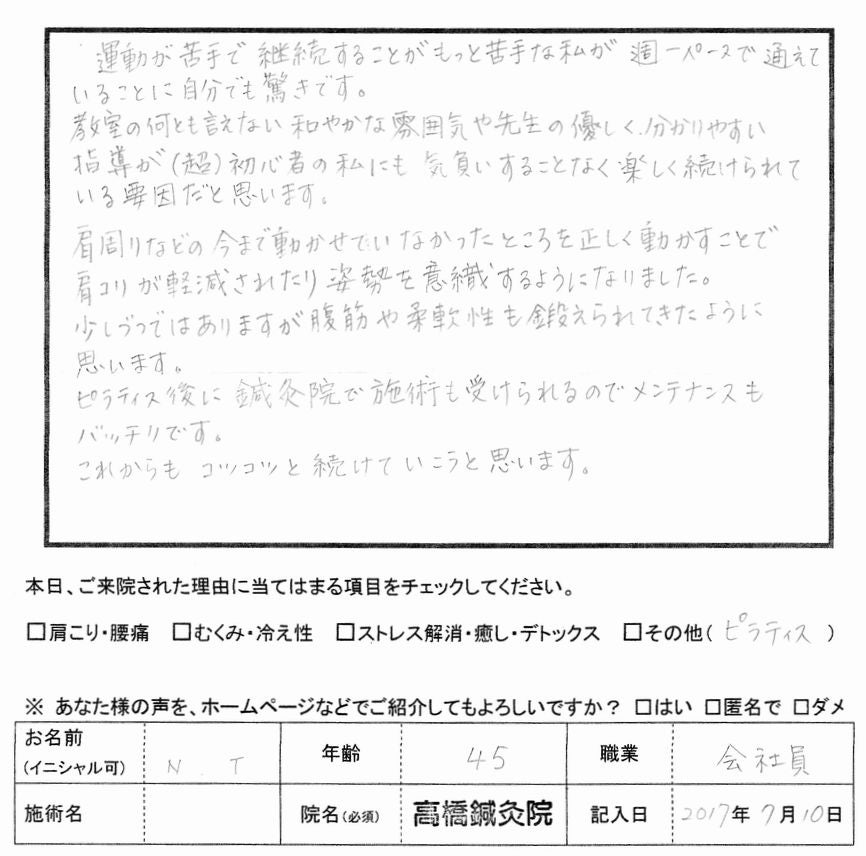 運動が苦手で継続することがもっと苦手な私が週一ペースで通えて
いることに自分でも驚きです。
教室の何とも言えない和やかな雰囲気や先生の優しく、分かりやすい
指導が(超)初心者の私にも気負いすることなく楽しく続けられて
いる要因だと思います。
肩周りなどの今まで動かせていなかったところを正しく動かすことで
肩コリが軽減されたり姿勢を意識するようになりました。
少しづつではありますが腹筋や柔軟性も鍛えられてきたように
思います。
ピラティス後に鍼灸院で施術も受けられるのでメンテナンスも
バッチリです。
これからもコツコツと続けていこうと思います。
本日、ご来院された理由に当てはまる項目をチェックしてください。
□肩こり・腰痛 □むくみ・冷え性 □ストレス解消・癒し・デトックス □その他( ピラティス )
※ あなた様の声を、ホームページなどでご紹介してもよろしいですか? □はい □匿名で □ダメ
お名前
(イニシャル可) N.T 年齢 45 職業 会社員
施術名 院名(必須) 高橋鍼灸院 記入日 2017年 7月10日